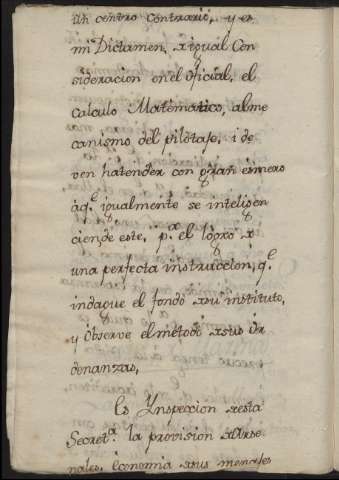 un centro contrario, y es
mi Dictamen, xigual Con
sideracion en el oficial, el
calculo Matematico, al me
canismo del pilotaje, i de
ven hatender con gran esmero
aq.e igualmente se intelijen
cien, de este, p.a el logro x
una perfecta instruccion, q.e
indague el fondo xsu instituto,
y observe el metodo xsus Or
denanzas,
Es Ynspeccion xesta
Secret.a la provision xArse
nales, economia xsus menajes